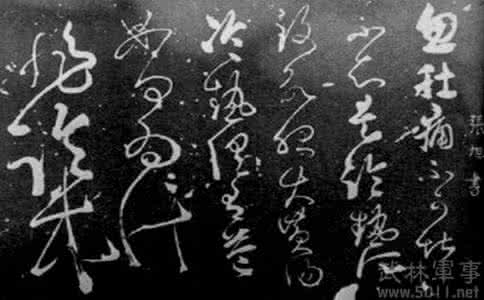 忽肚痛不可堪
張旭書
不知是冷熱所
致欲服大黃湯
冷熱俱有益
如何為計
非臨床
武林軍事
www.5011.net